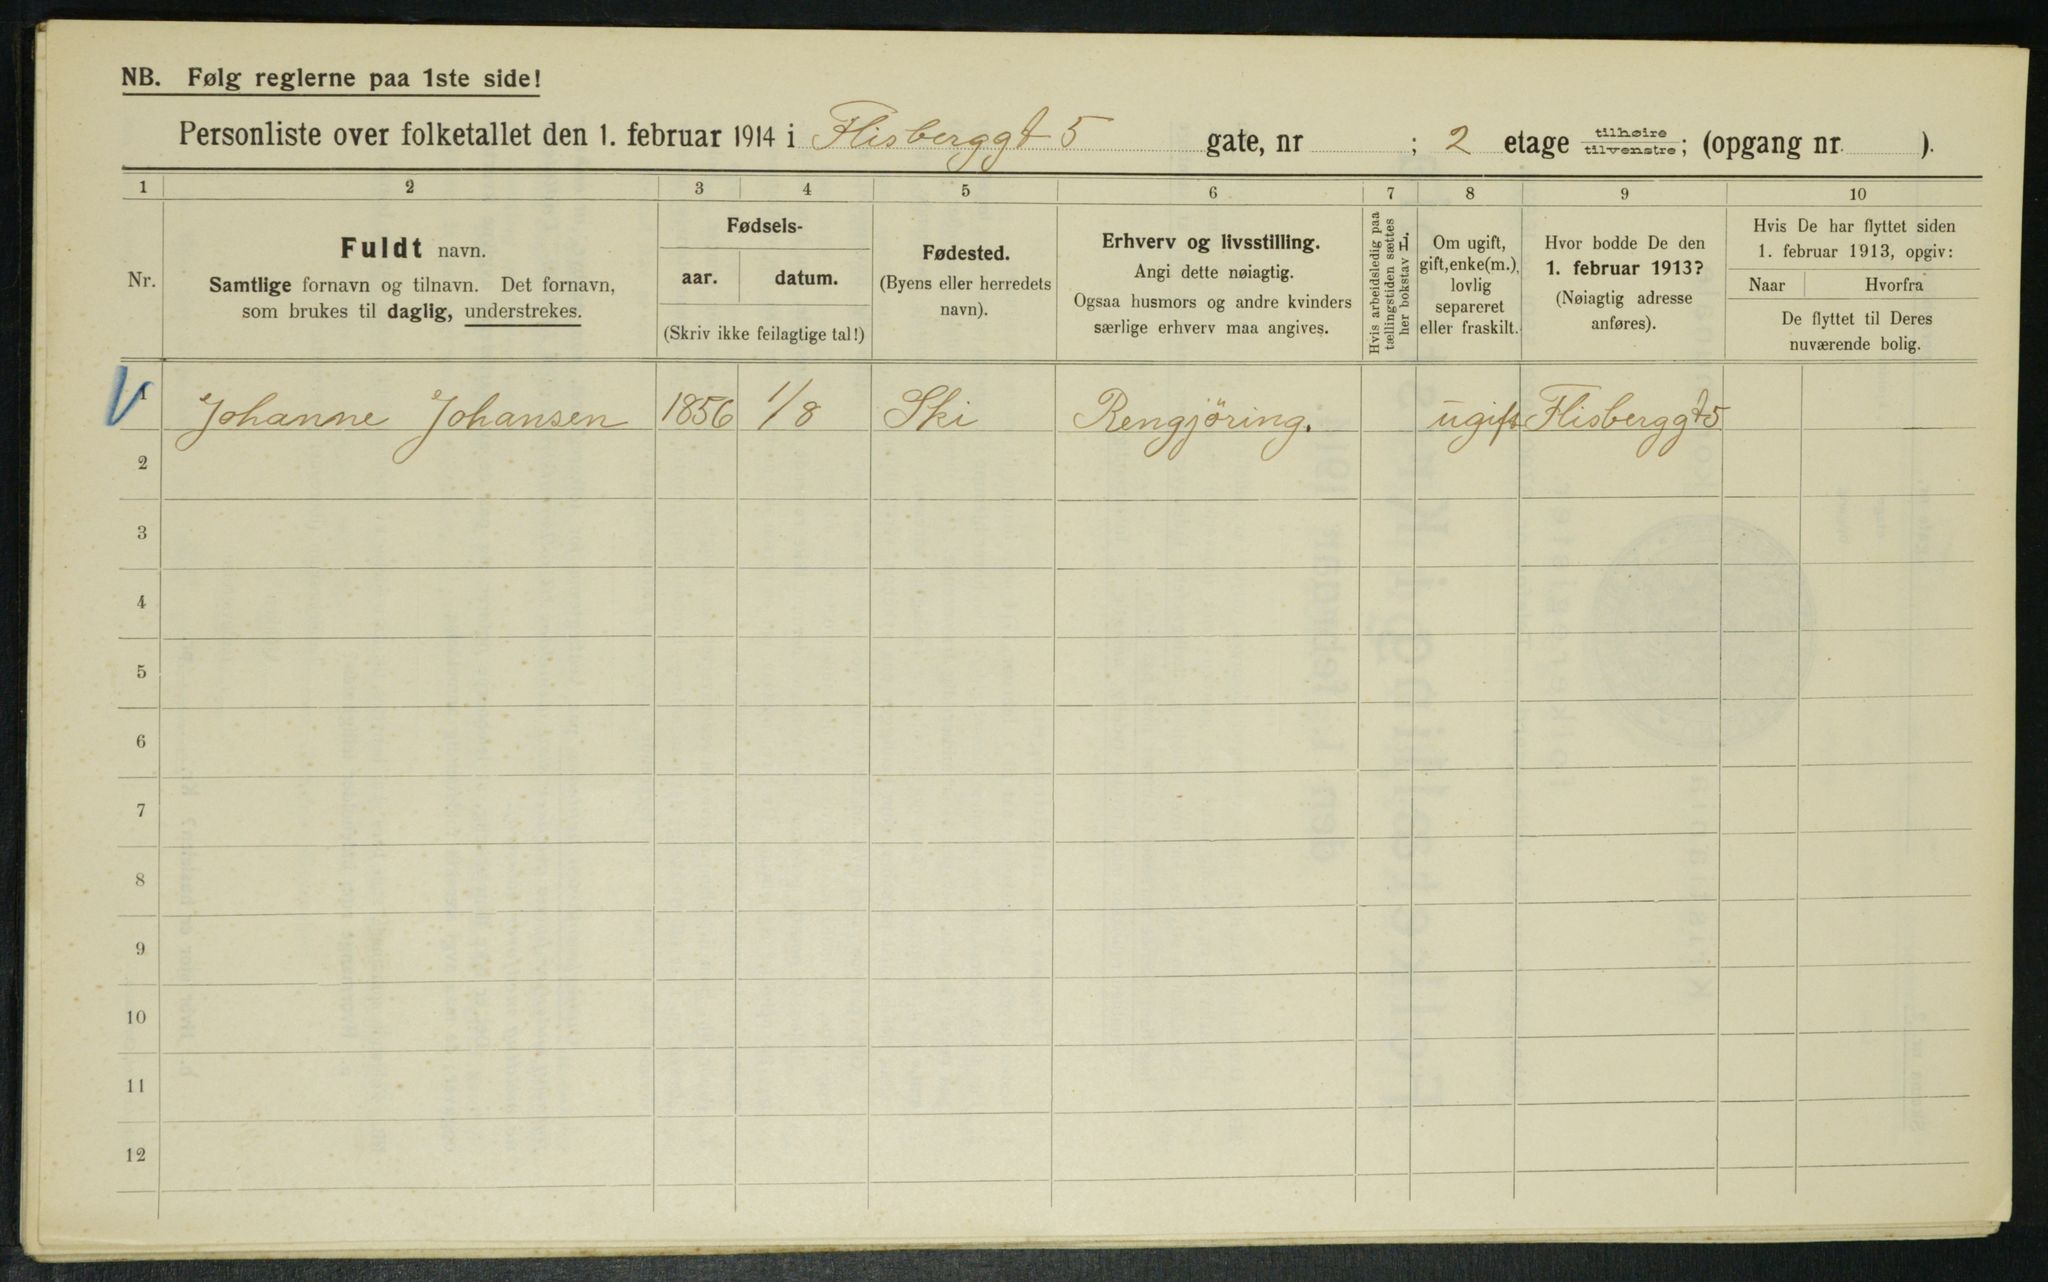 NB. Følg reglerne paa 1ste side!
Personliste over folketallet den 1. februar 1914 i Flisberggt 5 gate, nr ; 2 etage tilhøire tilvenstre; (opgang nr. ).
1 2 3 4 5 6 7 8 9 10
Nr.
Fuldt navn.
Samtlige fornavn og tilnavn. Det fornavn,
som brukes til daglig, understrekes.
Fødsels-
aar. datum.
(Skriv ikke feilagtige tal!)
Fødested.
(Byens eller herredets
navn).
Erhverv og livsstilling.
Angi dette nøiagtig.
Ogsaa husmors og andre kvinders
særlige erhverv maa angives.
Hvis arbeidsledig paa
tællingstiden sættes
her bokstav L.
Om ugift,
gift, enke(m.),
lovlig
separeret
eller fraskilt.
Hvor bodde De den
1. februar 1913?
(Nøiagtig adresse
anføres).
Hvis De har flyttet siden
1. februar 1913, opgiv:
Naar Hvorfra
De flyttet til Deres
nuværende bolig.
1 Johanne Johansen 1856 1/8 Ski Rengjöring. ugift Flisberggt 5
2
3
4
5
6
7
8
9
10
11
12